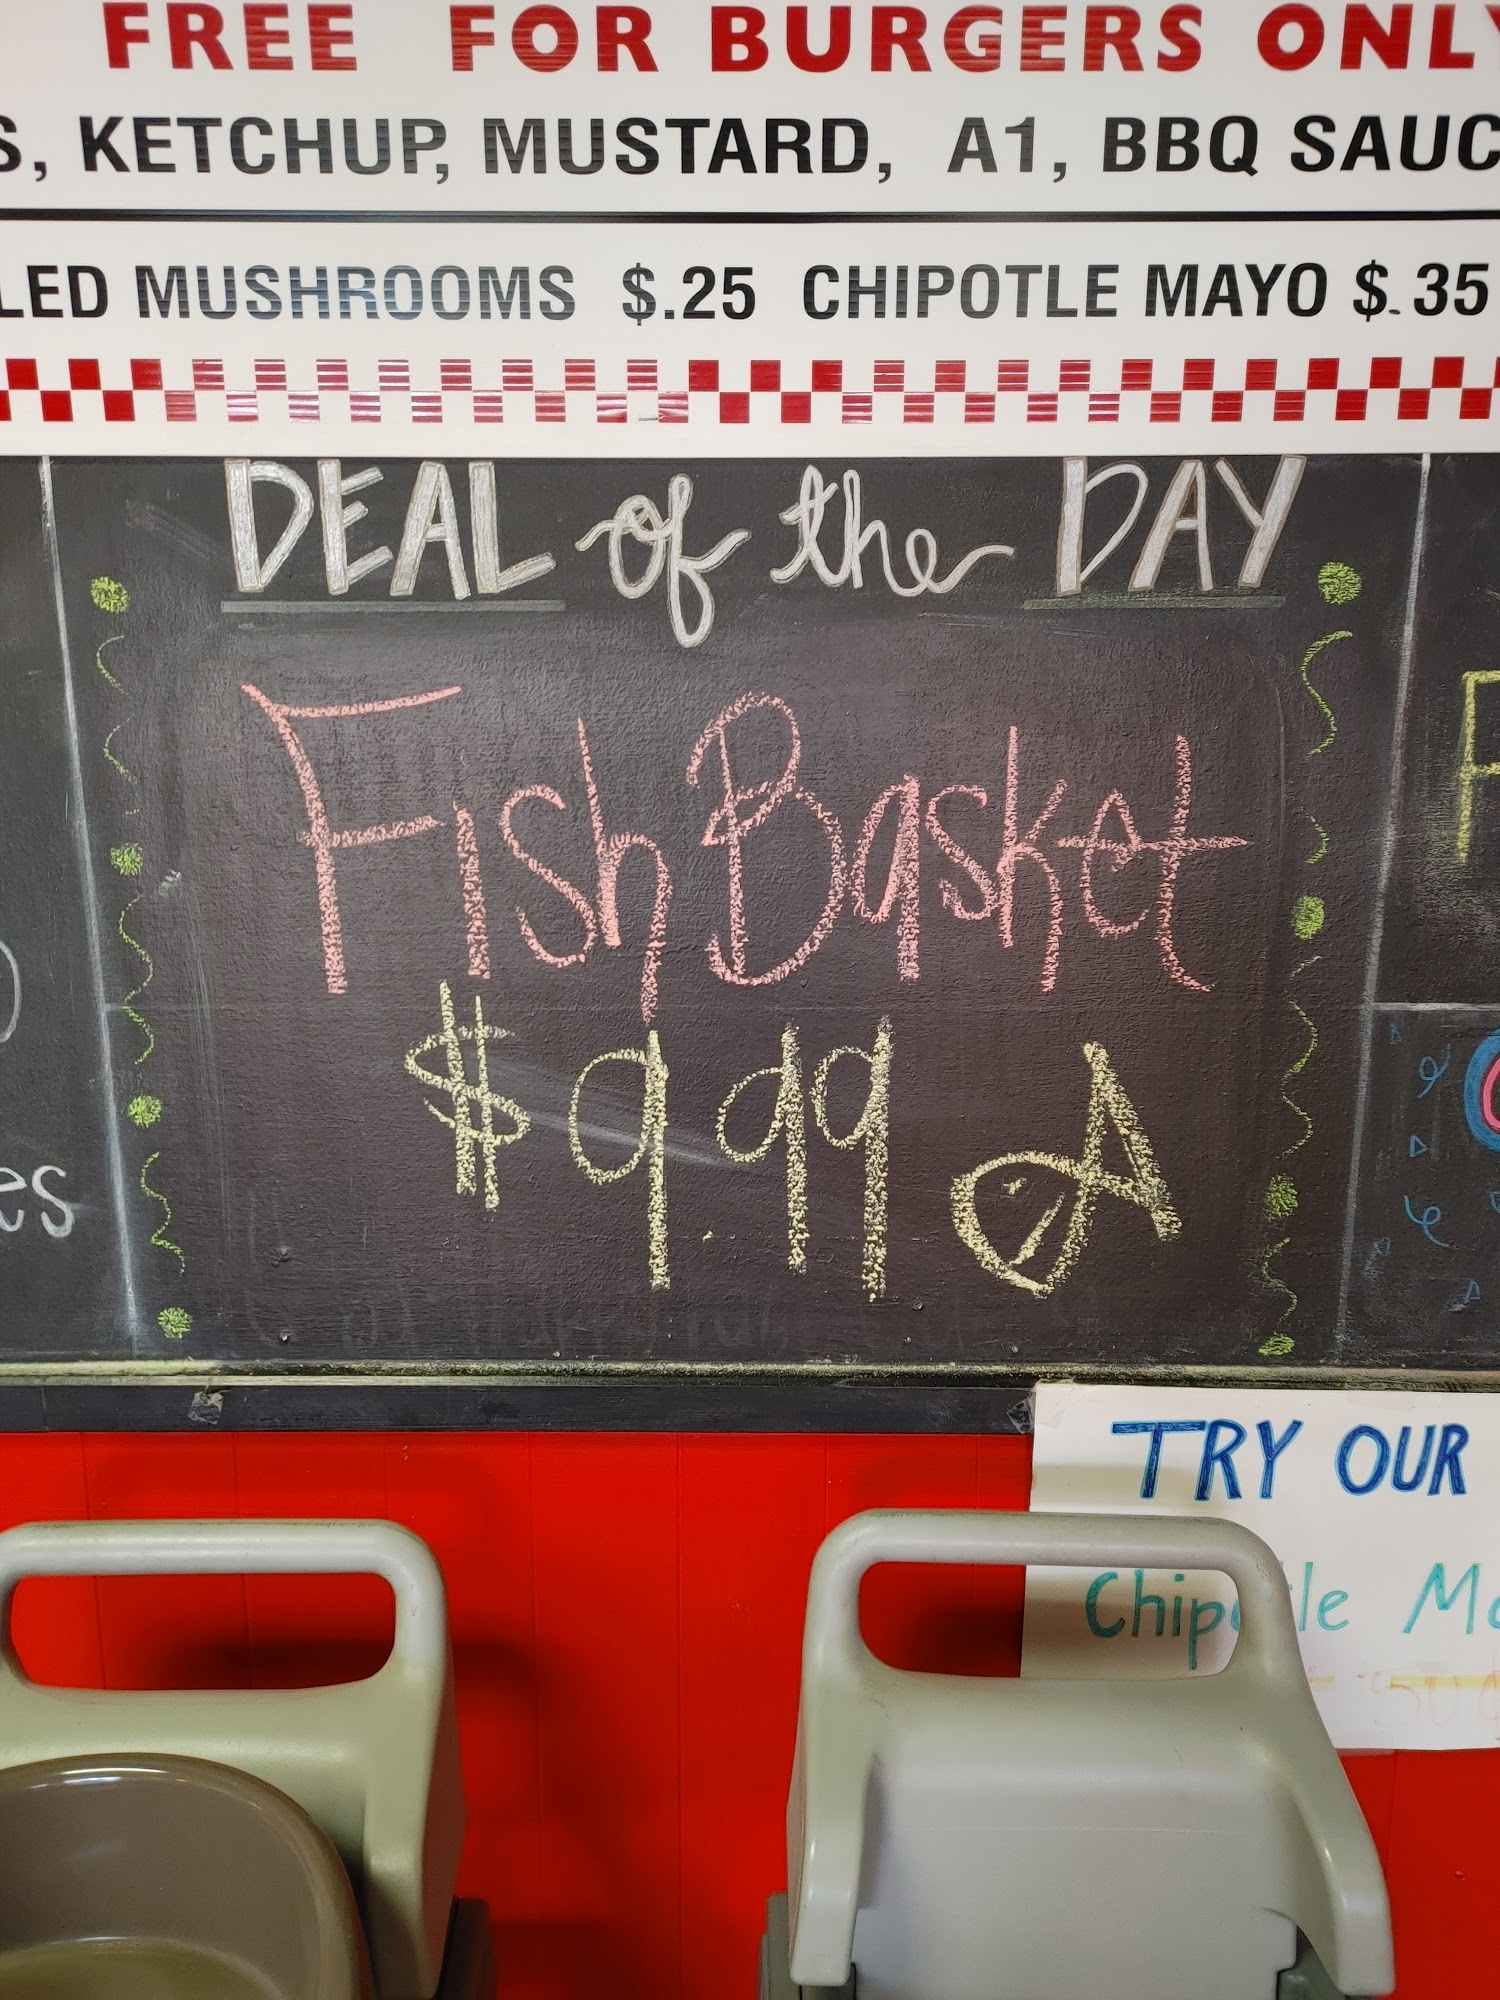 FREE FOR BURGERS ONLY
S, KETCHUP, MUSTARD, A1, BBQ SAUC
LED MUSHROOMS $.25 CHIPOTLE MAYO $.35
DEAL of the DAY
Fish Basket
$9.99
es
TRY OUR
Chipotle Ma
50¢